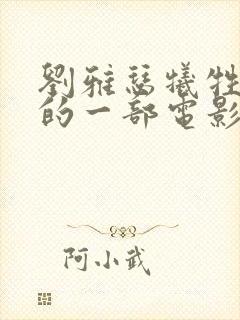 劉雅瑟犧牲
的一部電影
阿小武